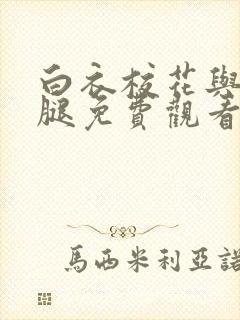 白衣校花與
腿免費觀看
馬西米利亞諾